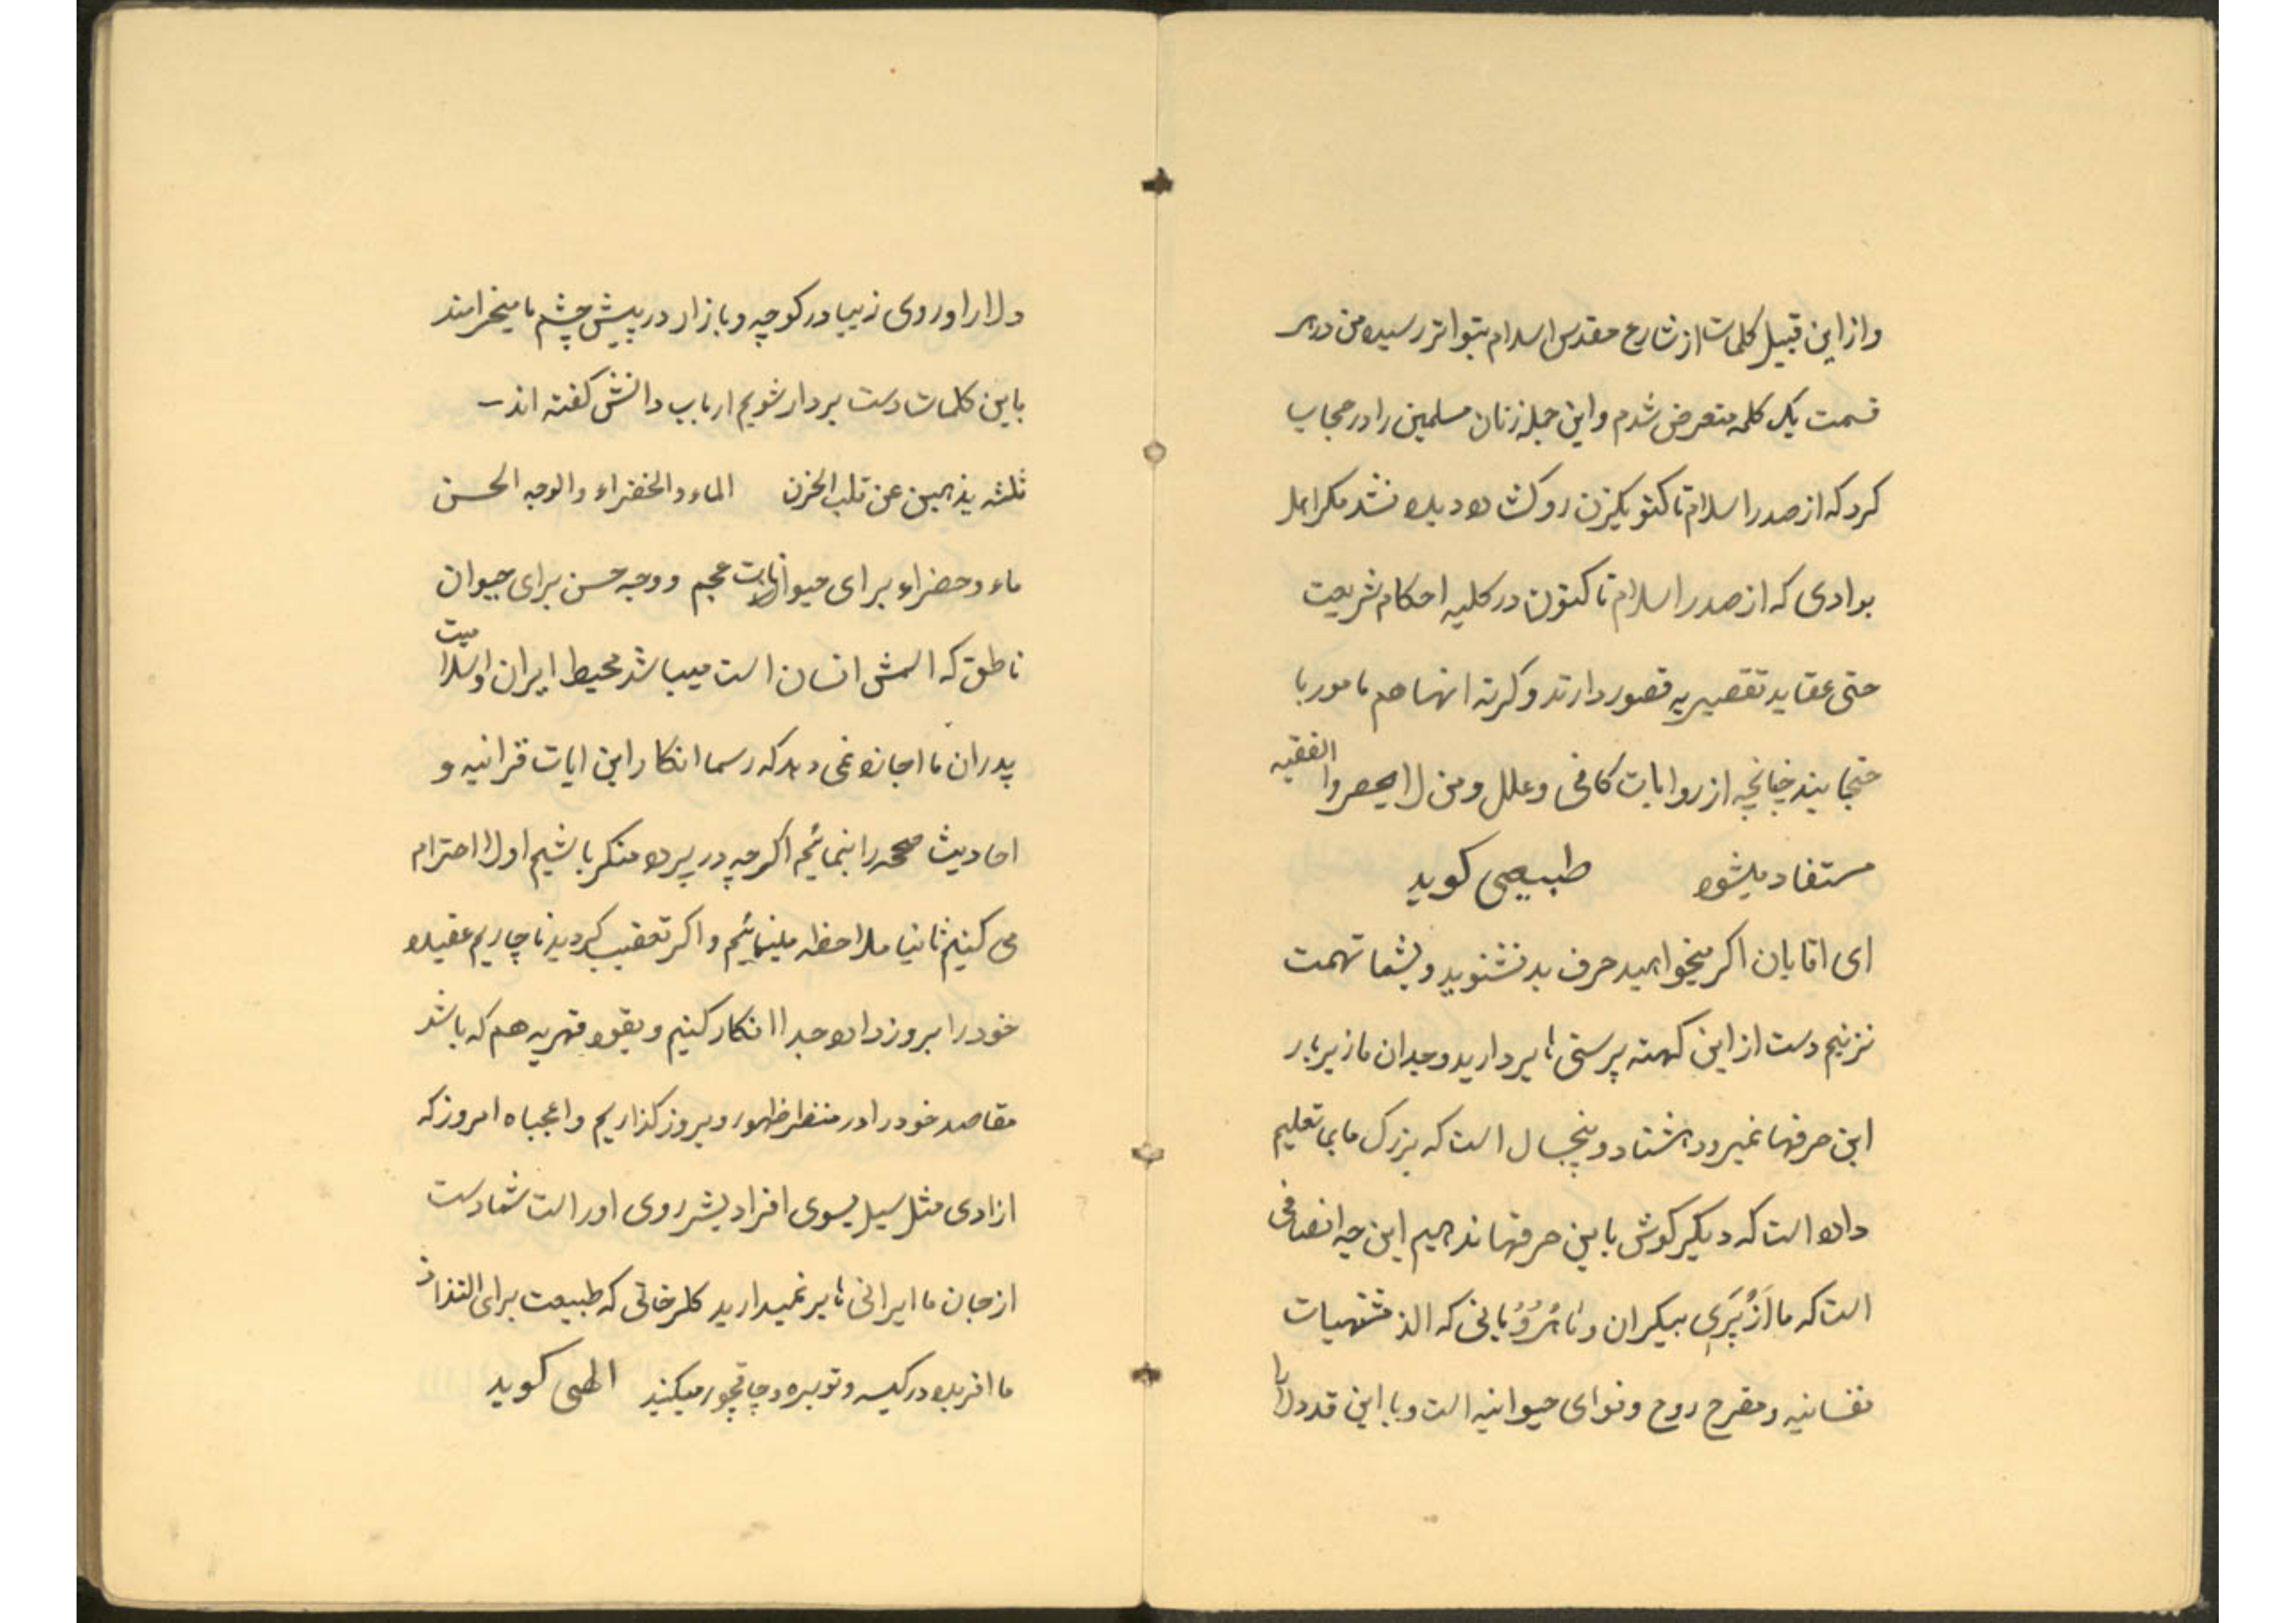 و از این قبیل کلمات از شارع مقدس اسلام بتواتر رسیده من در هر
قسمت یک کلمه متعرض شدم و این جمله زنان مسلمین را در حجاب
کرد که از صدر اسلام تا کنو یکزن روکشاده دیده نشد مکر اهل
بوادی که از صدر اسلام تا کنون در کلیه احکام شریعت
حتی عقاید تقصیر یه قصور دارند و کرنه انها هم مامور با
حتجابند چنانچه از روایات کافی و علل و من لا یحصروا الفقیه
مستفاد میشود        طبیعی کوید
ای اقایان اکر میخواهید حرف بد نشنوید و بشما تهمت
نزنیم دست از این کهنه پرستی ها بردارید وجدان ما زیر بار
این حرفها نمیرود هشتاد و پنجسال است که بزرک ما بما تعلیم
داده است که دیکر کوش باین حرفها ندهیم این چه انصافی
است که ما از پری پیکران و ماهرویانی که الذ مشتهیات
نفسانیه و مفرح روح و قوای حیوانیه است و با این قد دلارا
دلارا و روی زیبا در کوچه و بازار در پیش چشم ما میخرامند
باین کلمات دست بردار شویم ارباب دانش کفته اند –
ثلثه یذهبین عن قلب الحزن    الماء و الخضراء و الوجه الحسن
ماء و حضراء برای حیوانات عجم و وجه حسن برای حیوان
ناطق که اسمش انسان است میباشد محیط ایران و اسلامیت
پدران ما اجازه نمی دهد که رسما انکار این ایات قرانیه و
احادیث صححه را بنمائیم اکر چه در پرده منکر باشیم اولا احترام
می کنیم ثانیا ملاحظه مینمائیم و اکر تعقیب کردید ناچاریم عقیده
خود را بروز داده جدا انکار کنیم و بقوه قهریه هم که باشد
مقاصد خود را در منظر ظهور و بروز کذاریم واعجباه امروز که
ازادی مثل سیل بسوی افراد بشر روی اور است شما دست
از جان ما ایرانی ها بر نمیدارید کلرخانی که طبیعت برای التذاذ
ما افریده در کیسه و توبره و چاقچور میکنید    الهی کوید